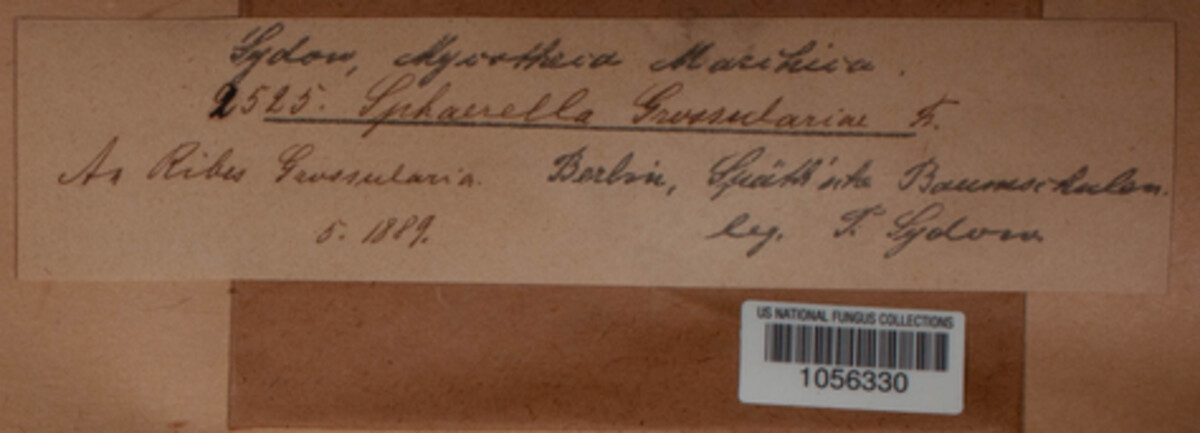 Sydow, Mycotheca Marchica.
2525. Sphaerella Grossulariae F.
An Ribes Grossularia. Berlin, Späth'sche Baumschulen.
5. 1889. leg. P. Sydow.
US NATIONAL FUNGUS COLLECTIONS
1056330